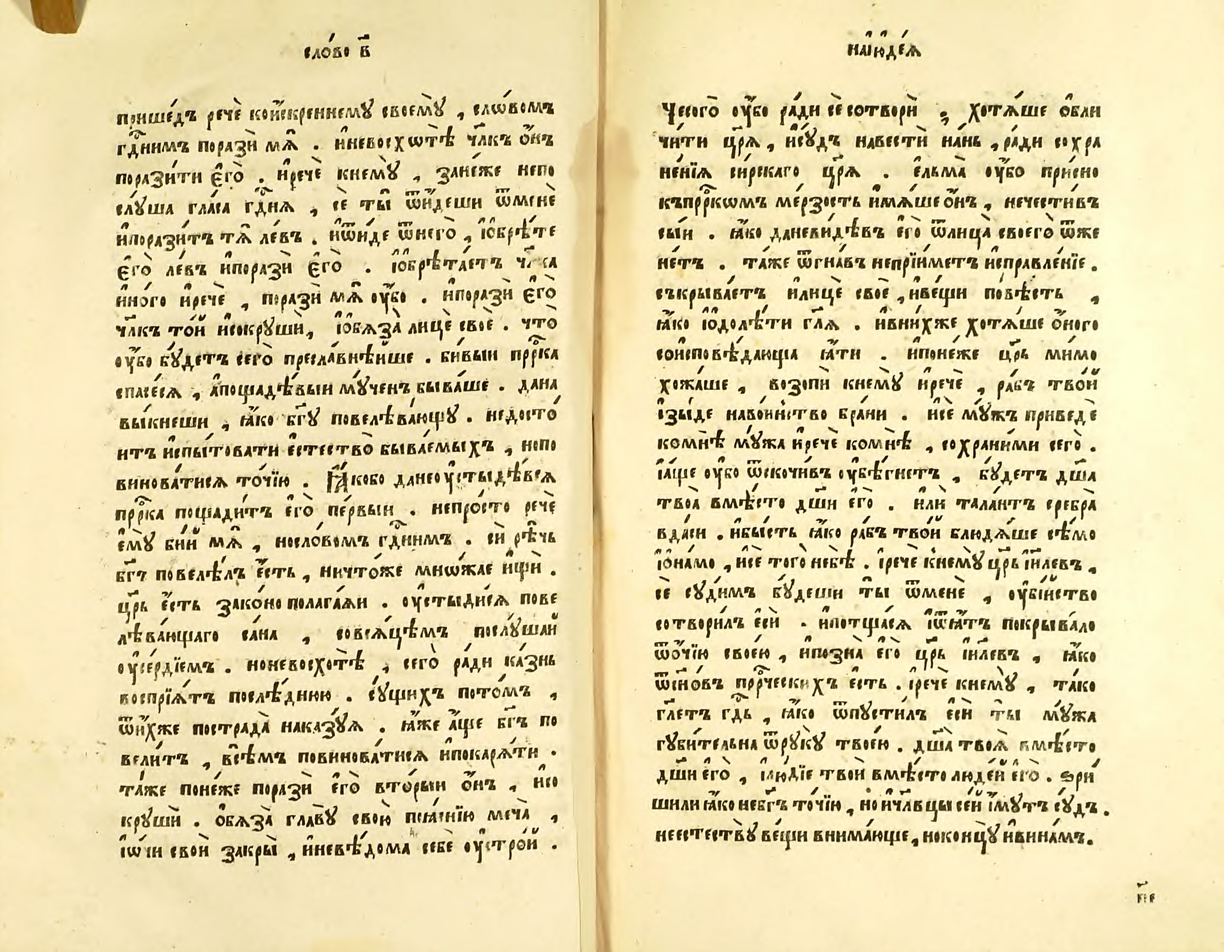 сло́во в҃
прише́дъ речѐ кои́скреннему своемꙋ̀ , сло́вомъ
гдⷭ҇нимъ порази́ мѧ . и҆невосхотѣ̀ чл҃къ о҆́нъ
порази́ти е҆го̀ . и҆речѐ кнемꙋ̀ , зане́же непо
слꙋ́ша гла́са гдⷭ҇нѧ , се́ ты̀ ѿи́деши ѿменѐ
и҆порази́тъ тѧ̀ ле́въ . и҆ѿи́де ѿнего̀ , і҆ѻбрѣ́те
е҆го̀ ле́въ и҆поразѝ е҆го̀ . і҆ѻбрѣта́етъ чл҃ка
и҆но́го и҆речѐ , порази́ мѧ ᲂу҆́бо . и҆поразѝ е҆го̀
чл҃къ то́й и҆сокрꙋшѝ, і҆ѻбѧза̀ лицѐ своѐ . что̀
ᲂу҆́бо бꙋ́детъ сего̀ пресла́внѣйше . би́выи прⷪ҇рка
спасе́сѧ , а҆пощадѣ́выи мꙋ́ченъ быва́ше . дана
вы́кнеши , ꙗ҆́ко бг҃ꙋ повелѣва́ющꙋ . недосто́
итъ и҆спы́товати є҆стество̀ быва́емыхъ , непо
винова́тисѧ то́чїю . Ꙗ҆́кобо данеᲂу҆стыдѣ́всѧ
прⷪ҇рка пощади́тъ е҆го̀ пе́рвыи . непро́сто речѐ
е҆мꙋ̀ бі́й мѧ̀ , носло́вомъ гдⷭ҇нимъ . сѝ рѣ́чь
бг҃ъ повелѣ́лъ е҆́сть , ничто́же мно́жае и҆щѝ .
цр҃ь е҆́сть зако́но полага́ѧи . ᲂу҆стыди́сѧ пове
лѣва́ющаго са́на , совсѧ́цѣмъ послꙋ́шай
ᲂу҆се́рдїемъ . ноневосхотѣ̀ , сего̀ ра́ди ка́знь
воспрїѧ́тъ послѣ́днюю . сꙋ́щихъ пото́мъ ,
ѿи́хже пострада̀ наказꙋ́ѧ . ꙗ҆́же а҆́ще бг҃ъ по
вели́тъ , всѣ́мъ повинова́тисѧ и҆покарѧ́ти .
та́же поне́же поразѝ е҆го̀ вторы́и о҆́нъ , и҆со
крꙋшѝ . ѻ҆бѧза̀ главꙋ̀ свою̀ поⷭ҇ѧ́нїю меча̀ ,
і҆ѻ҆́чи своѝ закры̀ , и҆невѣ́дома себѐ ᲂу҆стро́й .
наїюде́ѧ
Чесого̀ ᲂу҆́бо ра́ди се́ сотворѝ ; хотѧ́ше ѻ҆бли
чи́ти цр҃ѧ̀ , и҆сꙋ́дъ навестѝ на́нь , ра́ди сохра
не́нїѧ си́рскаго цр҃ѧ̀ . е҆льма̀ ᲂу҆́бо при́сно
къпрⷪ҇ркѡмъ ме́рзость и҆мѧ́ше о҆́нъ , нечести́въ
сы́и . ꙗ҆́ко даневи́дѣвъ е҆го̀ ѿлица̀ своего̀ ѿже
не́тъ . та́же ѿгна́въ непрїи́метъ и҆справле́нїе .
съкрыва́етъ и҆лицѐ своѐ , и҆ве́щи по́вѣсть ,
ꙗ҆́ко і҆ѻдолѣ́ти гл҃ѧ . и҆вни́хже хотѧ́ше о҆́ного
соисповѣ́дающїа ꙗ҆́ти . и҆поне́же цр҃ь мимо
хожа́ше , возопѝ кнемꙋ̀ и҆речѐ , ра́бъ тво́й
і҆зы́де наво́инство бра́ни . и҆сѐ мꙋ́жъ приведѐ
комнѣ̀ мꙋ́жа и҆речѐ комнѣ̀ , сохра́ними сего̀ .
і҆а҆́ще ᲂу҆́бо ѿско́чивъ ᲂу҆бѣ́гнетъ , бꙋ́детъ дш҃а̀
твоѧ̀ вмѣ́сто дш҃ѝ е҆го̀ . и҆лѝ тала́нтъ сребра̀
вда́си . и҆бы́сть ꙗ҆́ко ра́бъ тво́й блюдѧ́ше сѣ́мо
і҆ѻна́мо , и҆сѐ того̀ небѣ̀ . і҆речѐ кнемꙋ̀ цр҃ь і҆и҃левъ ,
се́ сꙋди́мъ бꙋ́деши ты̀ ѿменѐ , ᲂу҆бі́йство
сотвори́лъ е҆сѝ . и҆потща́сѧ і҆ѿѧ́тъ покрыва́ло
ѿѻ҆́чїю свое́ю , и҆позна̀ е҆го̀ цр҃ь і҆и҃левъ , ꙗ҆́ко
ѿсн҃о́въ прⷪ҇рческихъ е҆́сть . і҆речѐ кнемꙋ̀ , та́ко
гл҃етъ гдⷭ҇ь , ꙗ҆́ко ѿпꙋсти́лъ е҆сѝ ты̀ мꙋ́жа
гꙋби́тельна ѿрꙋкꙋ̀ твое́ю . дш҃а̀ твоѧ̀ вмѣ́сто
дш҃ѝ е҆го̀ , і҆лю́дїе твоѝ вмѣ́сто люде́й е҆го̀ . зри́
шили ꙗ҆́ко небг҃ъ то́чїю , но и҆чл҃вцы се́й и҆́мꙋтъ сꙋ́дъ .
неестествꙋ̀ ве́щи внима́юще , ноконцꙋ̀ и҆вина́мъ .